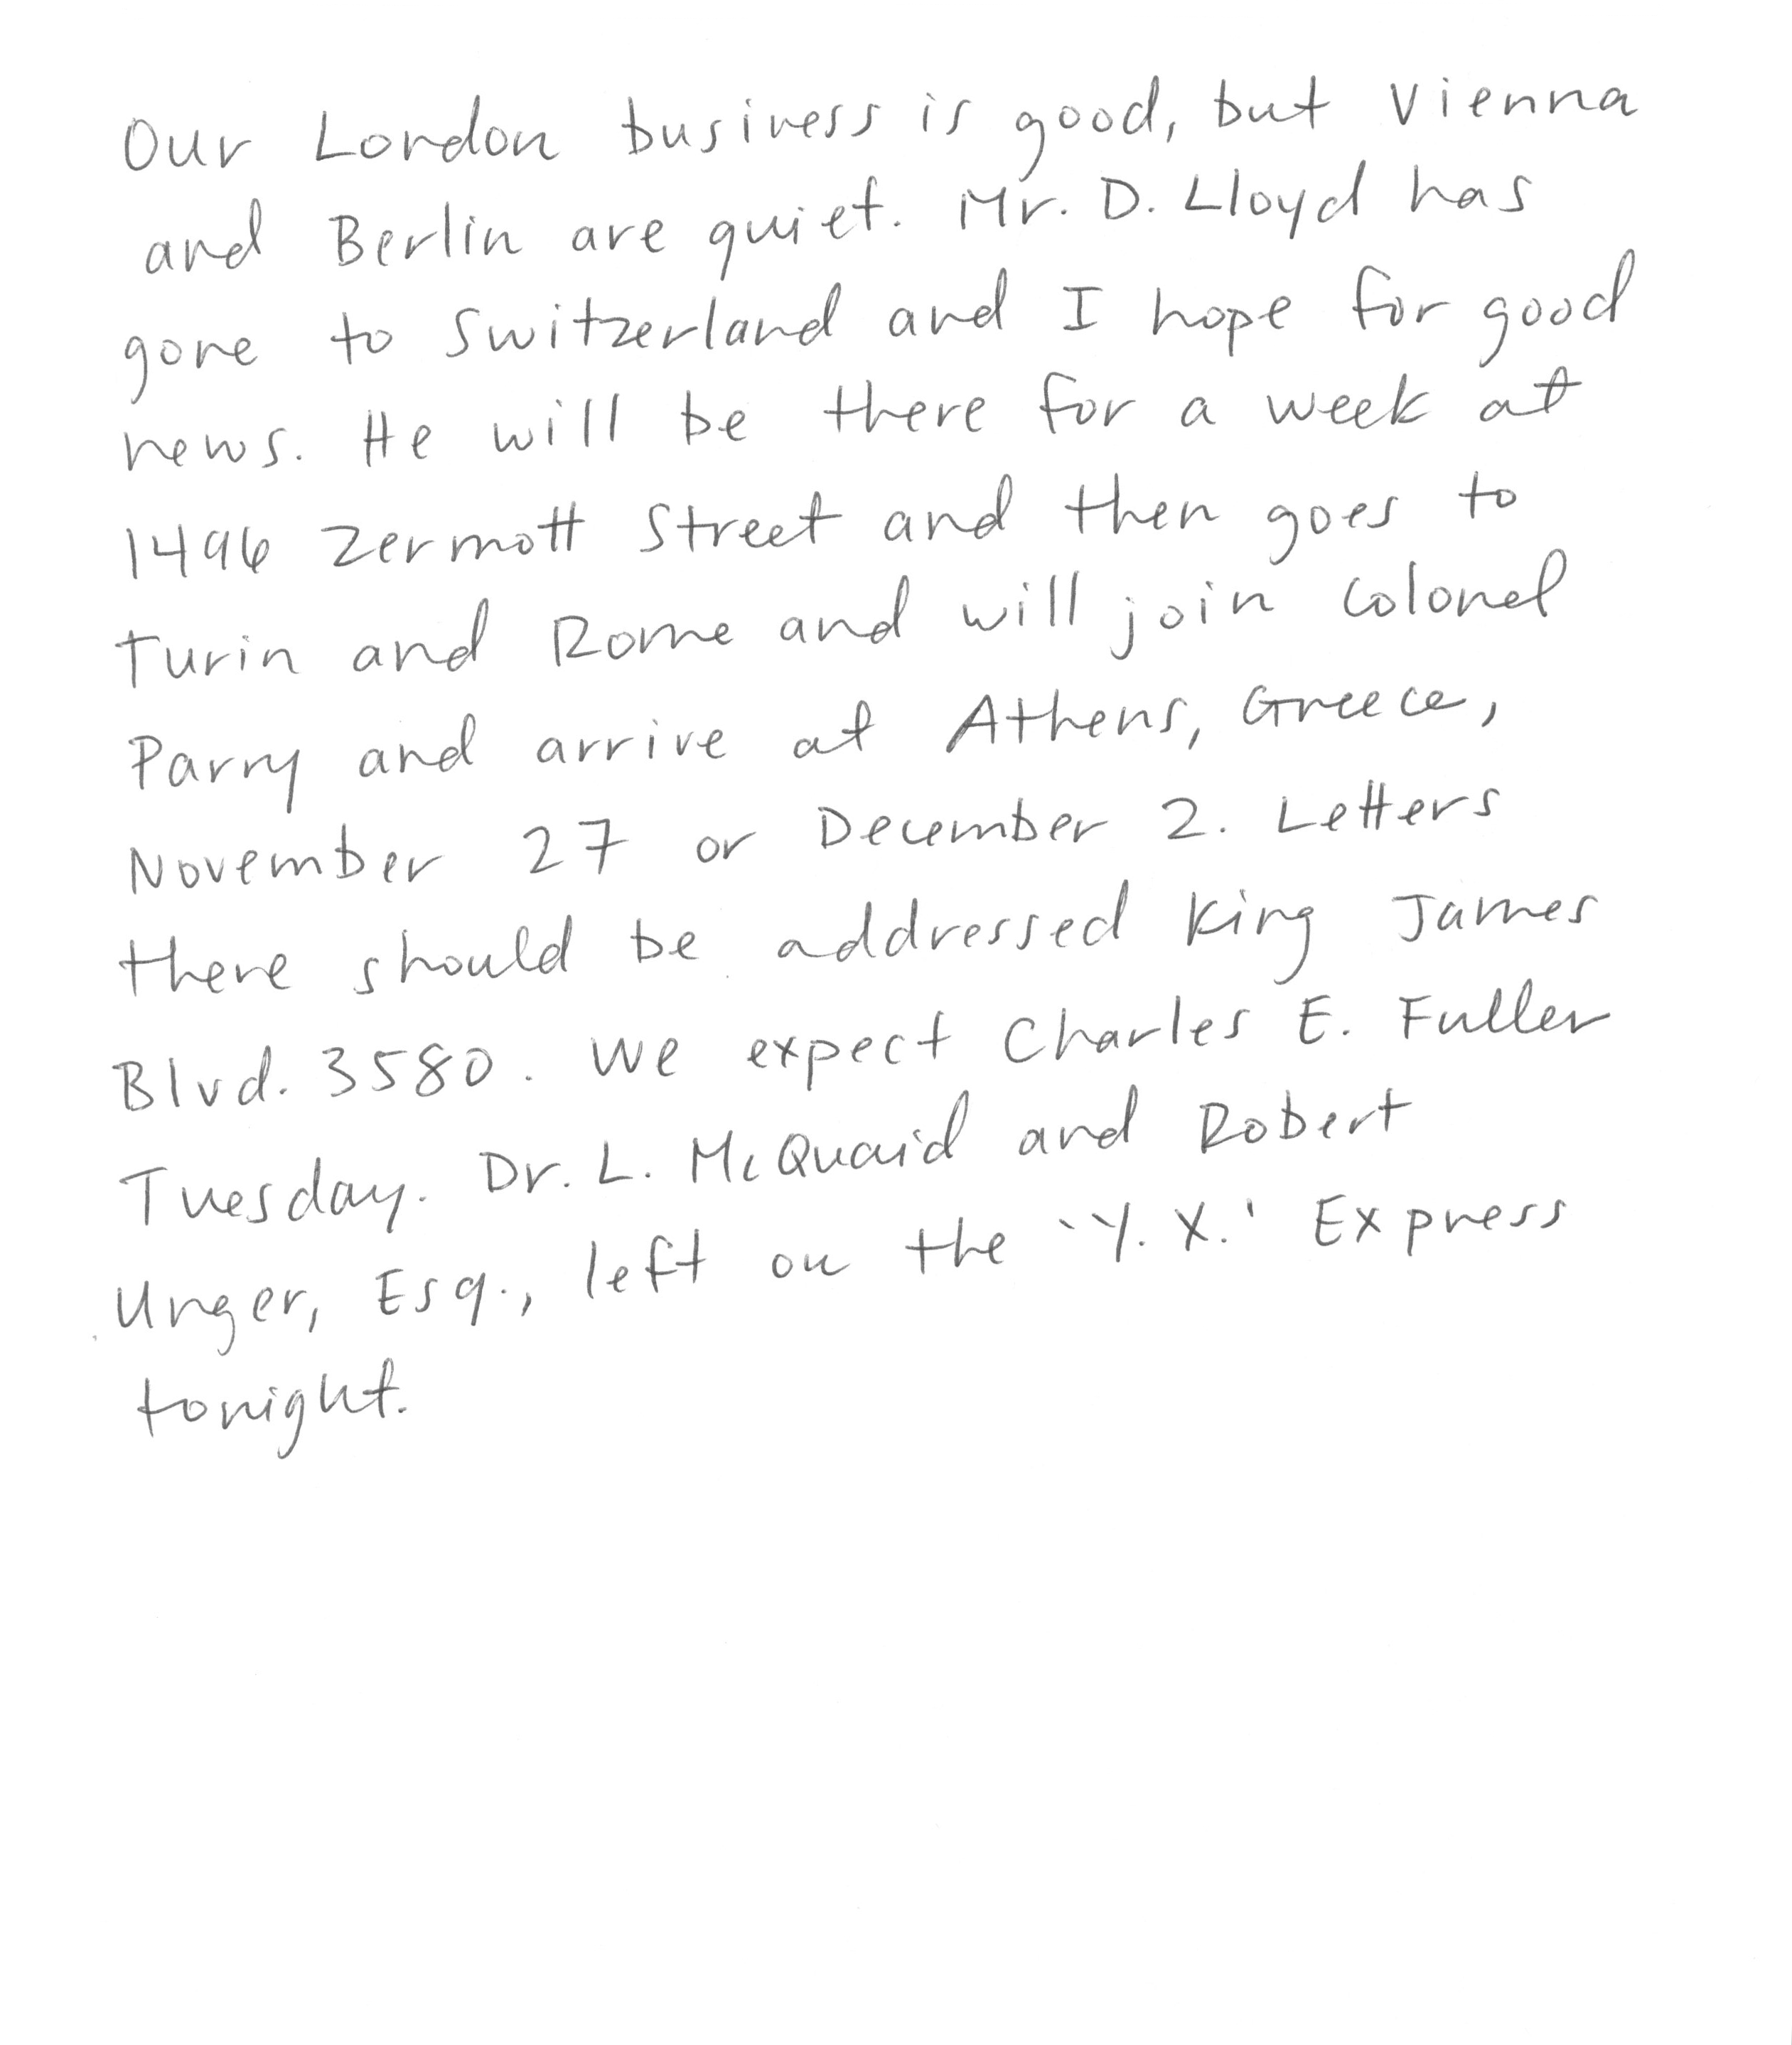 Our London business is good, but Vienna
and Berlin are quiet. Mr. D. Lloyd has
gone to Switzerland and I hope for good
news. He will be there for a week at
1496 Zermott Street and then goes to
Turin and Rome and will join Colonel
Parry and arrive at Athens, Greece,
November 27 or December 2. Letters
there should be addressed King James
Blvd. 3580. We expect Charles E. Fuller
Tuesday. Dr. L. McQuaid and Robert
Unger, Esq., left on the 'Y. X.' Express
tonight.